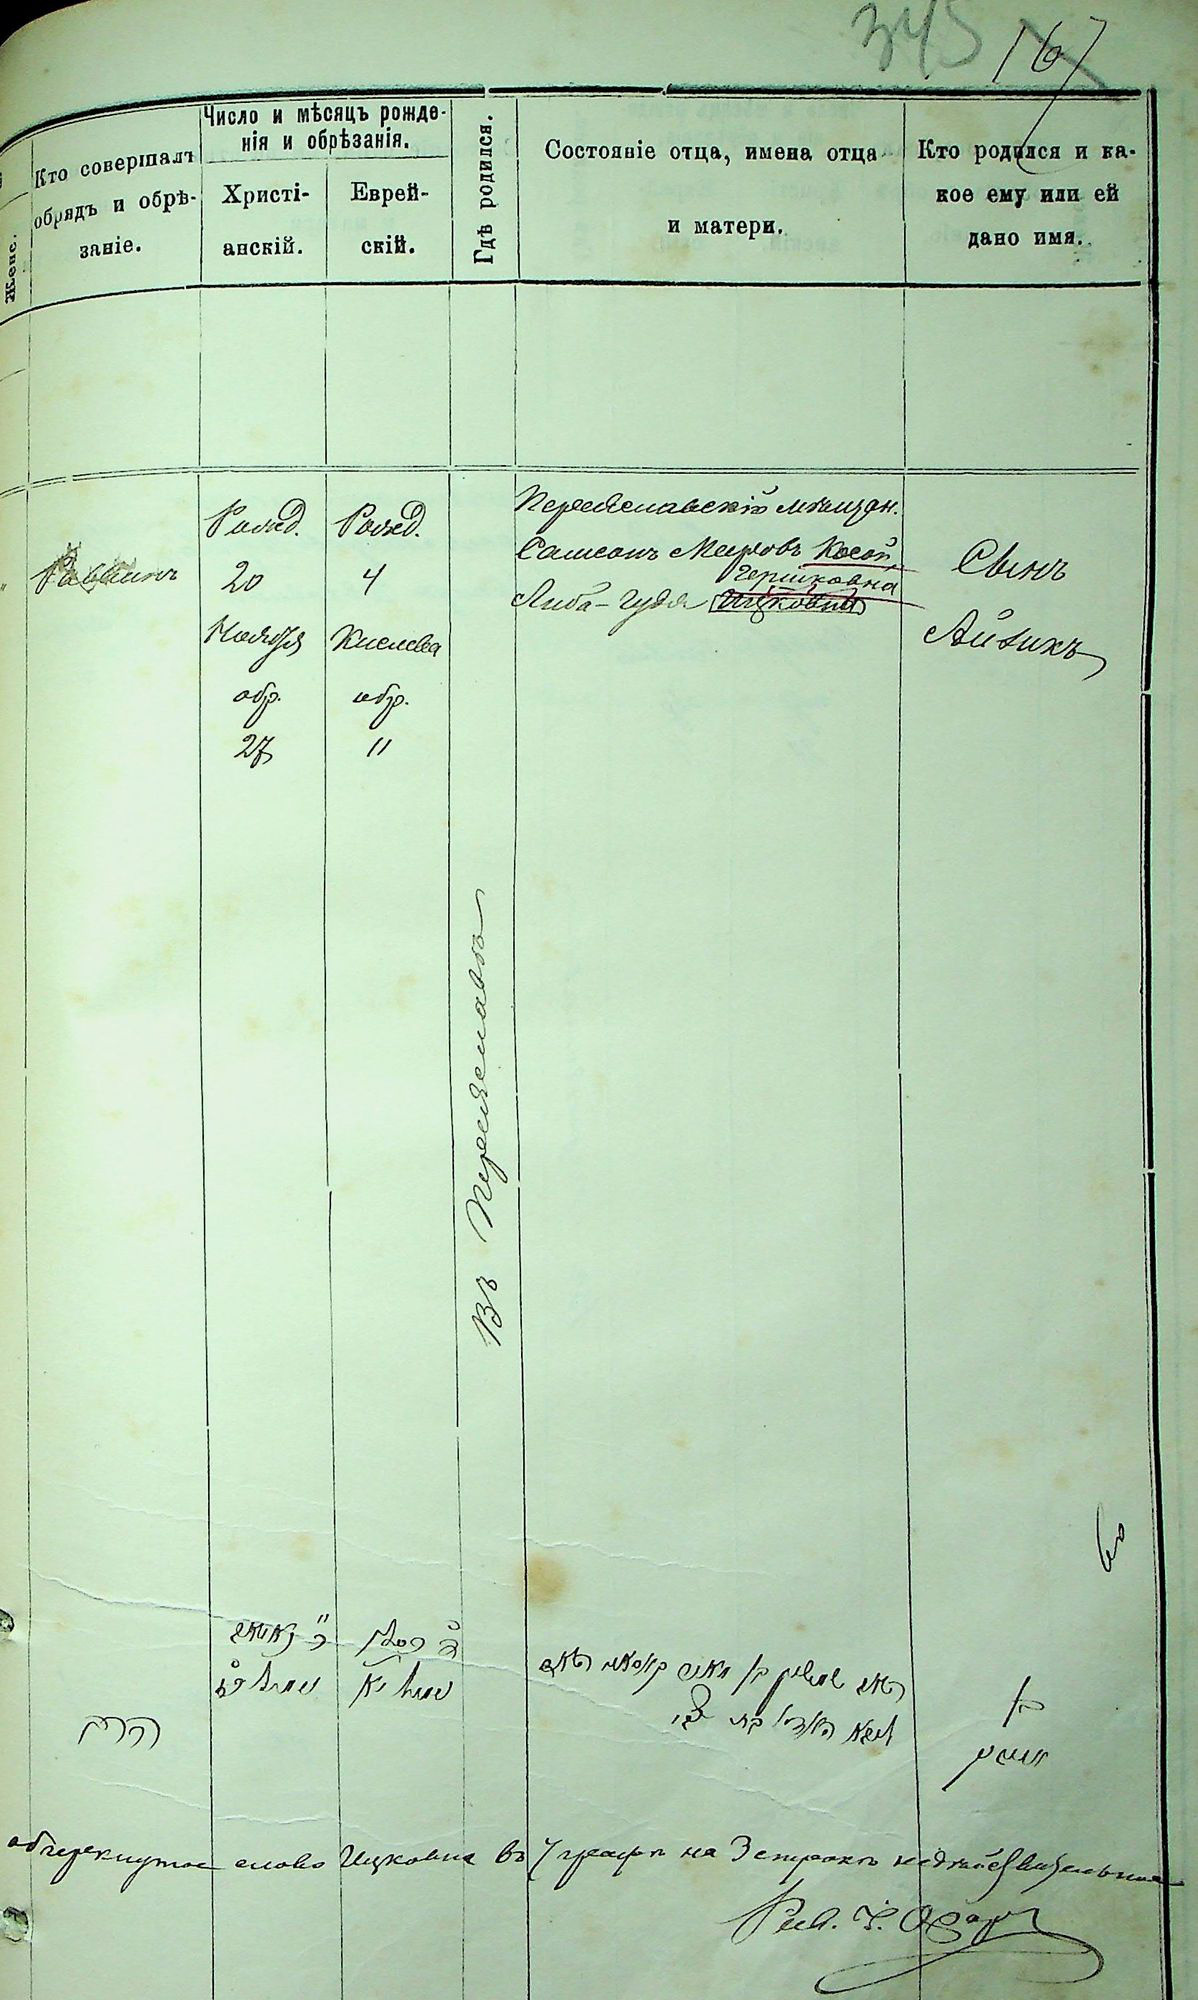 345
167
Женс.
Кто совершалъ
обрядъ и обрѣ-
заніе.
Число и мѣсяцъ рожде-
нія и обрѣзанія.
Христі-
анскій.
Еврей-
скій.
Гдѣ родился.
Состояніе отца, имена отца
и матери.
Кто родился и ка-
кое ему или ей
дано имя.
Раввинъ
Рожд.
20
Ноября
обр.
27
Рожд.
4
Кислева
обр.
11
Въ Переяславѣ
Переяславскій мѣщан.
Самсонъ Меировъ Косой,
Гершковна
Либа-Гудя Ицковна
Сынъ
Айзикъ
הרב
בן
אייזיק
обчеркнутое слово Ицковна въ 7 графѣ на 3 строкѣ недѣйствительно
Рав.